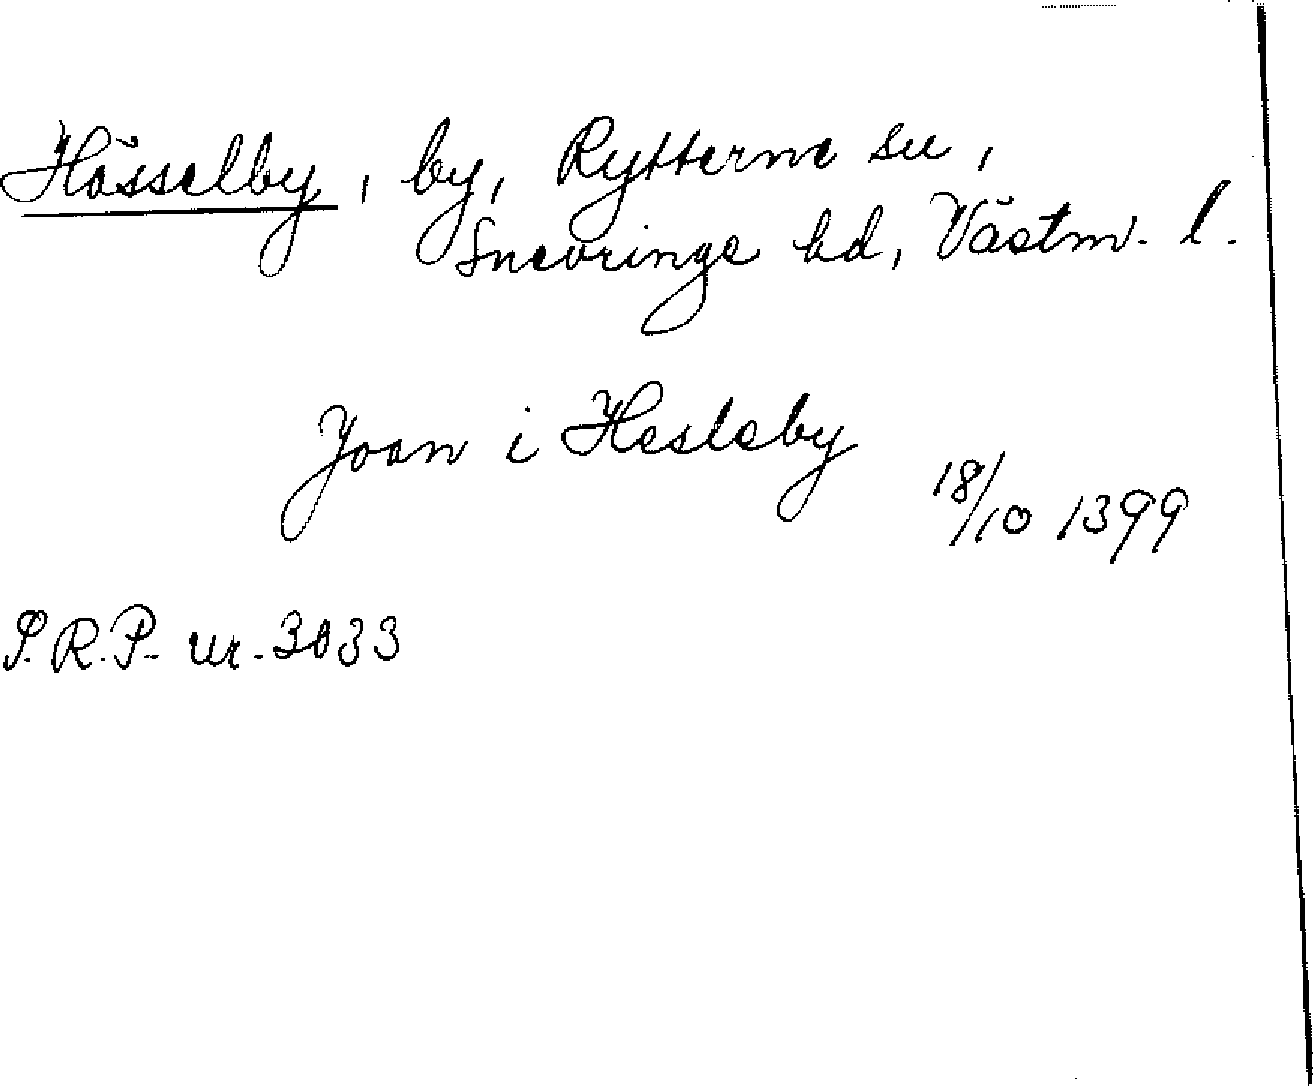 Hässelby, by, Rytterne sn,
Snevringe hd, Västm. l.
Joan i Hesleby
18/10 1399
P.R.P. nr. 3033